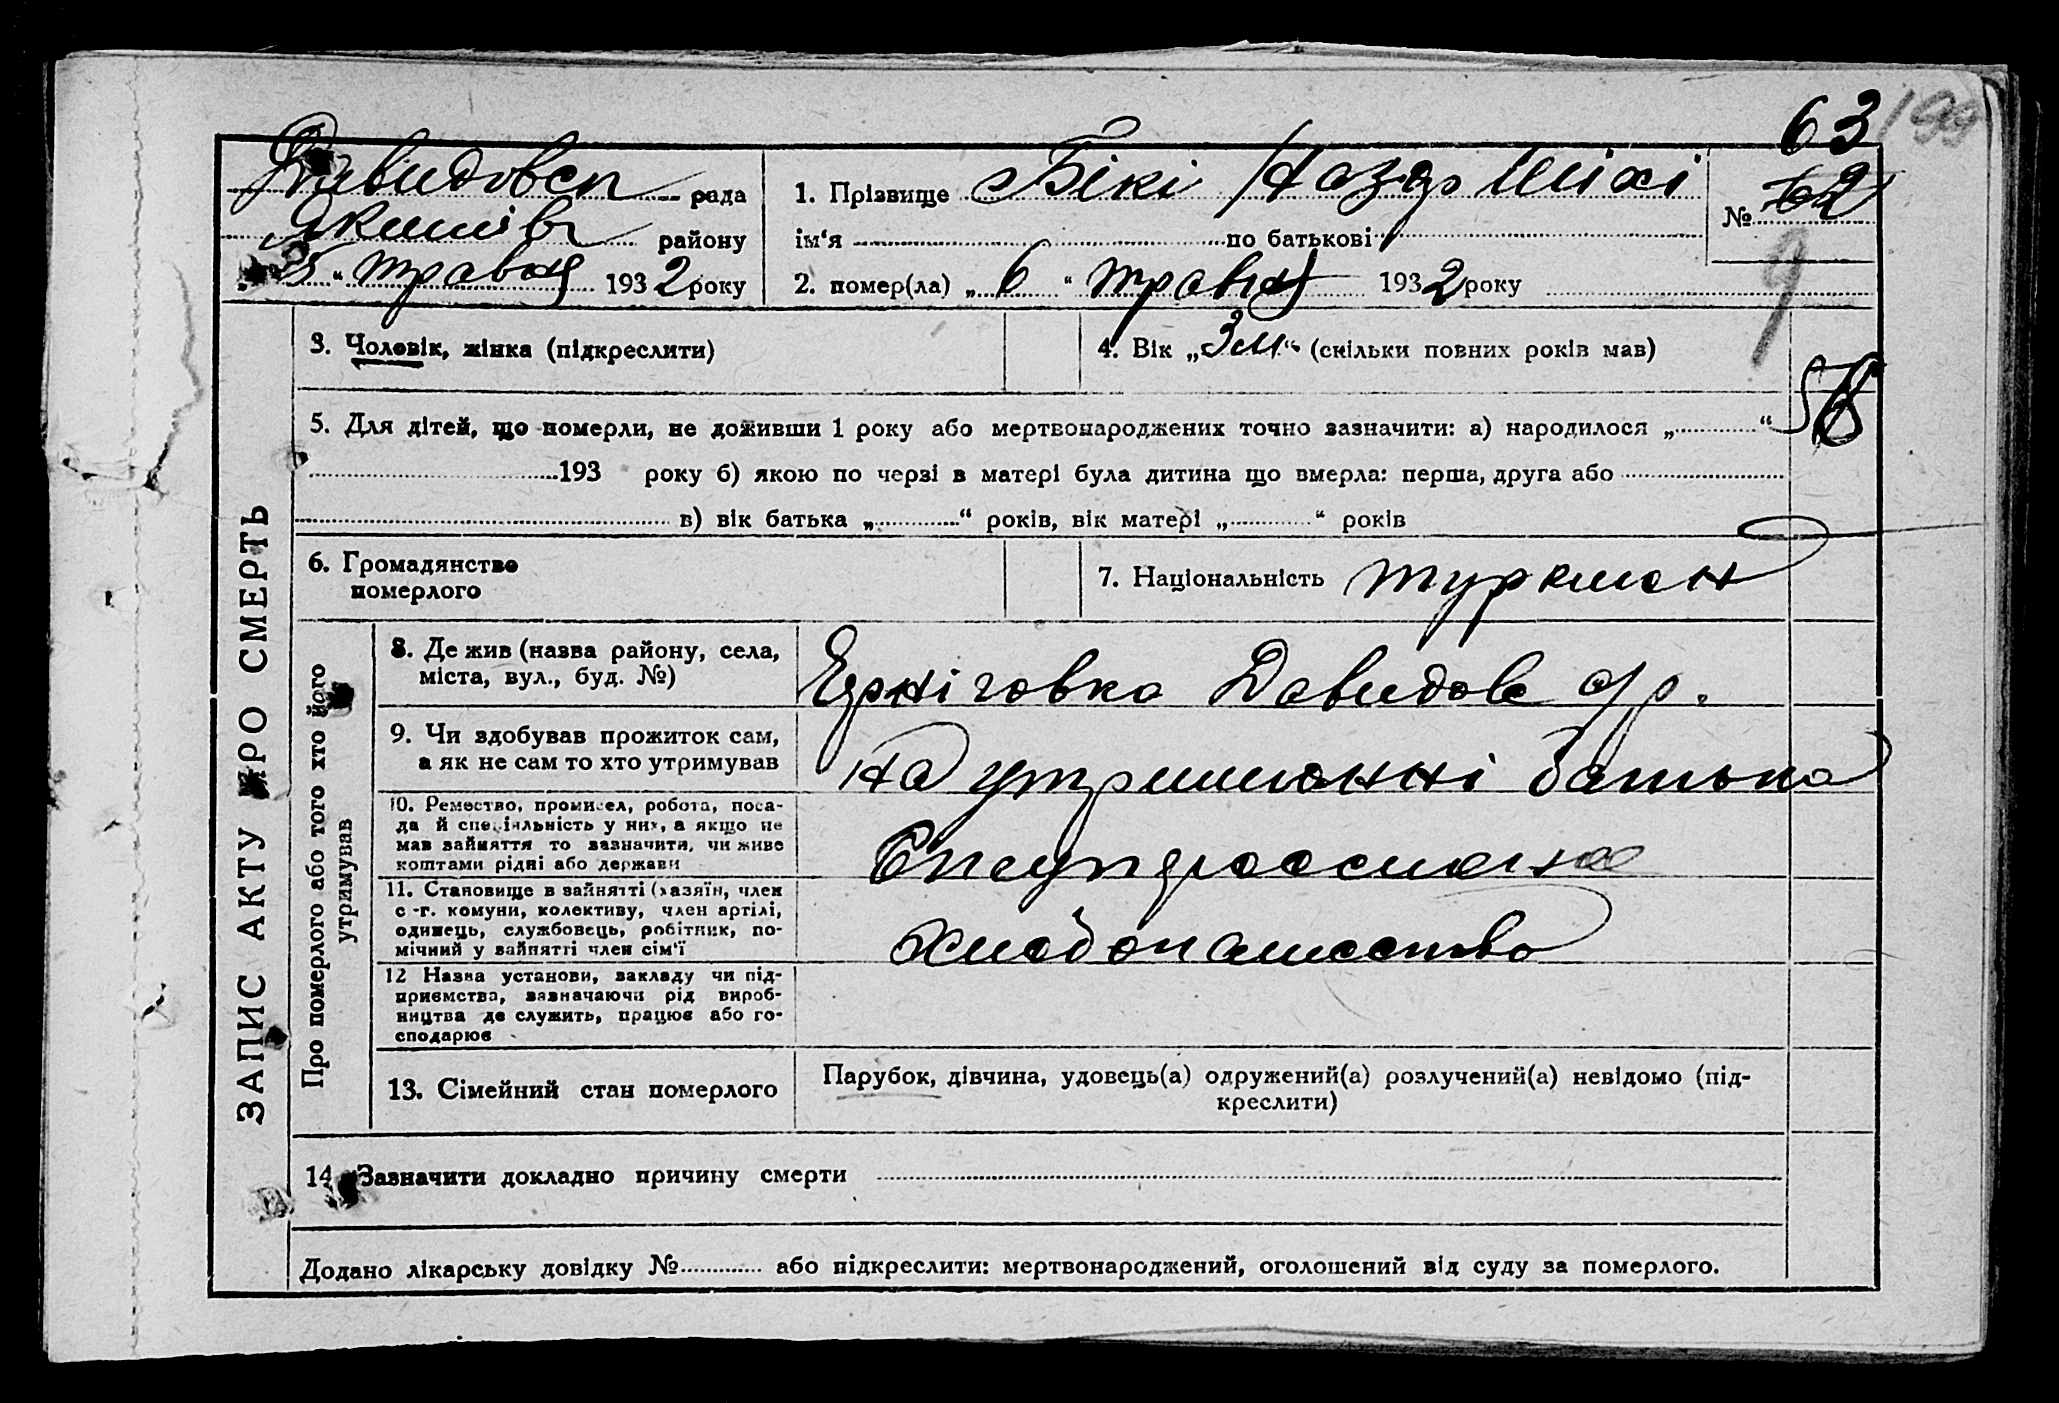 63 199
Давидовсп рада
Якимів району
5 " травня 1932 року
1. Прізвище Бікі Назар Шихі
ім'я по батькові
№ 62
9
2. помер(ла) „ 6 " травня 1932 року
3. Чоловік, жінка (підкреслити)
4. Вік „3 м" (скільки повних років мав)
5. Для дітей, що померли, не доживши 1 року або мертвонароджених точно зазначити: а) народилося „ "
193 року б) якою по черзі в матері була дитина що вмерла: перша, друга або
в) вік батька „ " років, вік матері „ " років
6. Громадянство
померлого
7. Національність туркмен
ЗАПИС АКТУ ПРО СМЕРТЬ
Про померлого або того хто його
утримував
8. Де жив (назва району, села,
міста, вул., буд. №)
Давидов с/р.
9. Чи здобував прожиток сам,
а як не сам то хто утримував
на утриманні батька
10. Ремество, промисел, робота, поса-
да й спеціяльність у них, а якщо не
мав зайняття то зазначити, чи живе
коштами рідні або держави
11. Становище в зайнятті (хазяїн, член
с.-г. комуни, колективу, член артілі,
одинець, службовець, робітник, по-
мічний у зайнятті член сім'ї
хлібопашество
12 Назва установи, закладу чи під-
приємства, зазначаючи рід вироб-
ництва де служить, працює або го-
сподарює
13. Сімейний стан померлого
Парубок, дівчина, удовець(а) одружений(а) розлучений(а) невідомо (під-
креслити)
14. Зазначити докладно причину смерти
Додано лікарську довідку № або підкреслити: мертвонароджений, оголошений від суду за померлого.